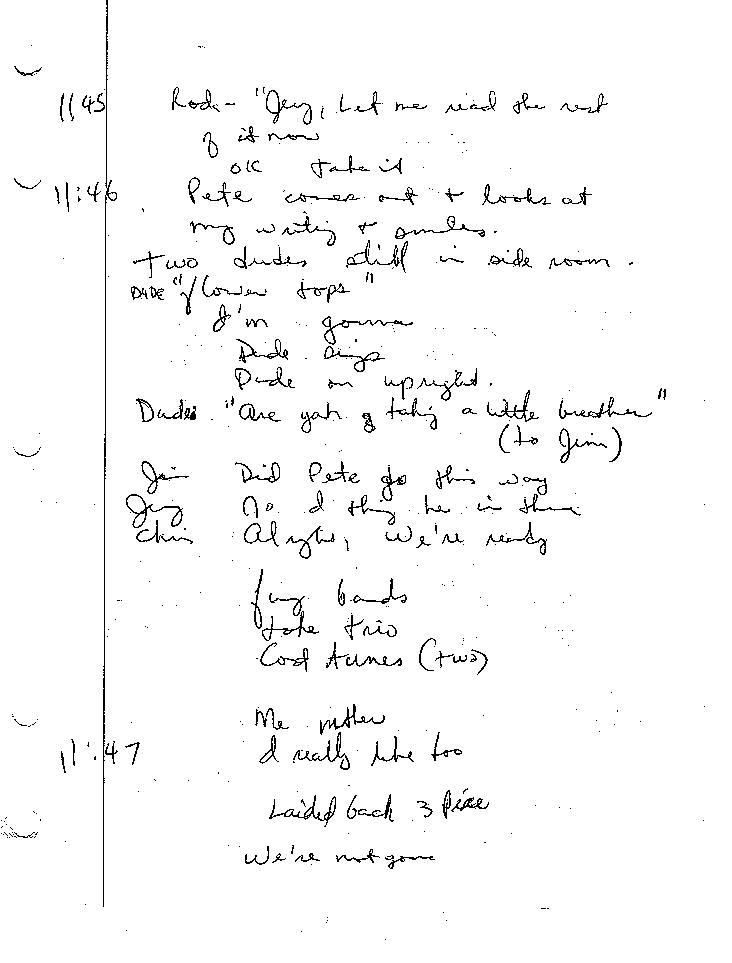 1145 Rod - "Jey, Let me read the rest
of it now
OK take it
11:46 Pete comes out + looks at
my writing + smiles.
two dudes still in side room.
DUDE "flower tops"
I'm gonna
Dude sings
Dude on upright.
Dude "Are yah taking a little breather"
(to Jim)
Jim Did Pete go this way
Jey No I thing he in there
Chris Alright, we're ready
bands
take trio
tunes (two)
Me
11:47 I really like too
Laided back 3 Piece
We're not gone